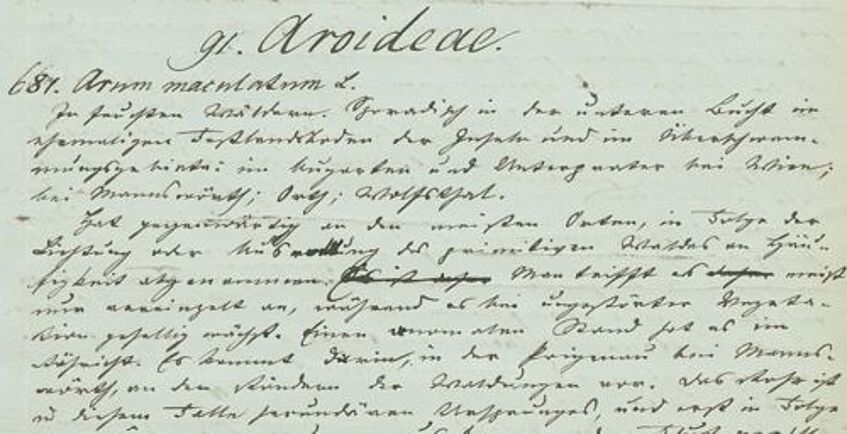 91. Aroideae.
681. Arum maculatum L.
In feuchten Wäldern. Sporadisch in der unteren Bucht im
ehemaligen Festlandsboden der Inseln und im Überschwem-
mungsgebiete: im Augarten und Unterprater bei Wien;
bei Mannswörth; Orth; Wolfsthal.
Hat gegenwärtig an den meisten Orten, in Folge der
Lichtung oder Ausrottung des primitiven Waldes an Häu-
figkeit abgenommen. Man trifft es meist
nur vereinzelt an, während es bei ungestörter Vegeta-
tion gesellig wächst. Einen anomalen Stand hat es im
Röhricht. Es kommt darin, in der bei Manns-
wörth, an den Rändern der Waldungen vor. Das Rohr ist
in diesem Falle secundären Ursprunges, und erst in Folge